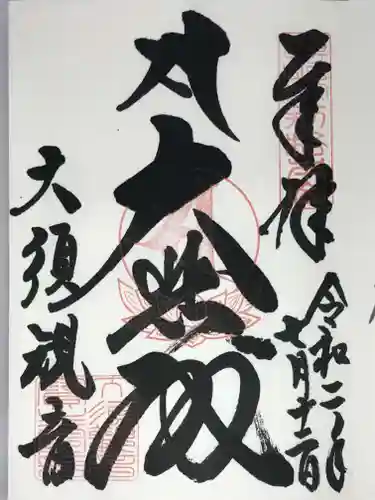 奉拝
令和二年
七月十二日
大悲殿
大須観音